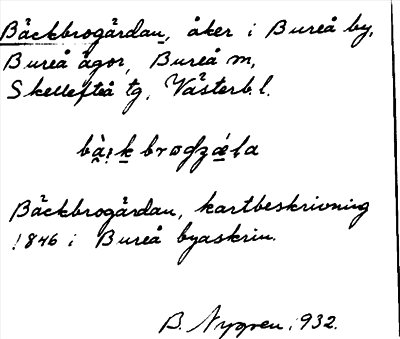 Bäckbrogårdan, åker i Bureå by,
Bureå ägor, Bureå m,
Skellefteå tg, Västerb. l.
Bäckbrogårdan, kartbeskrivning
1846 i Bureå byaskrin.
B. Nygren 1932.